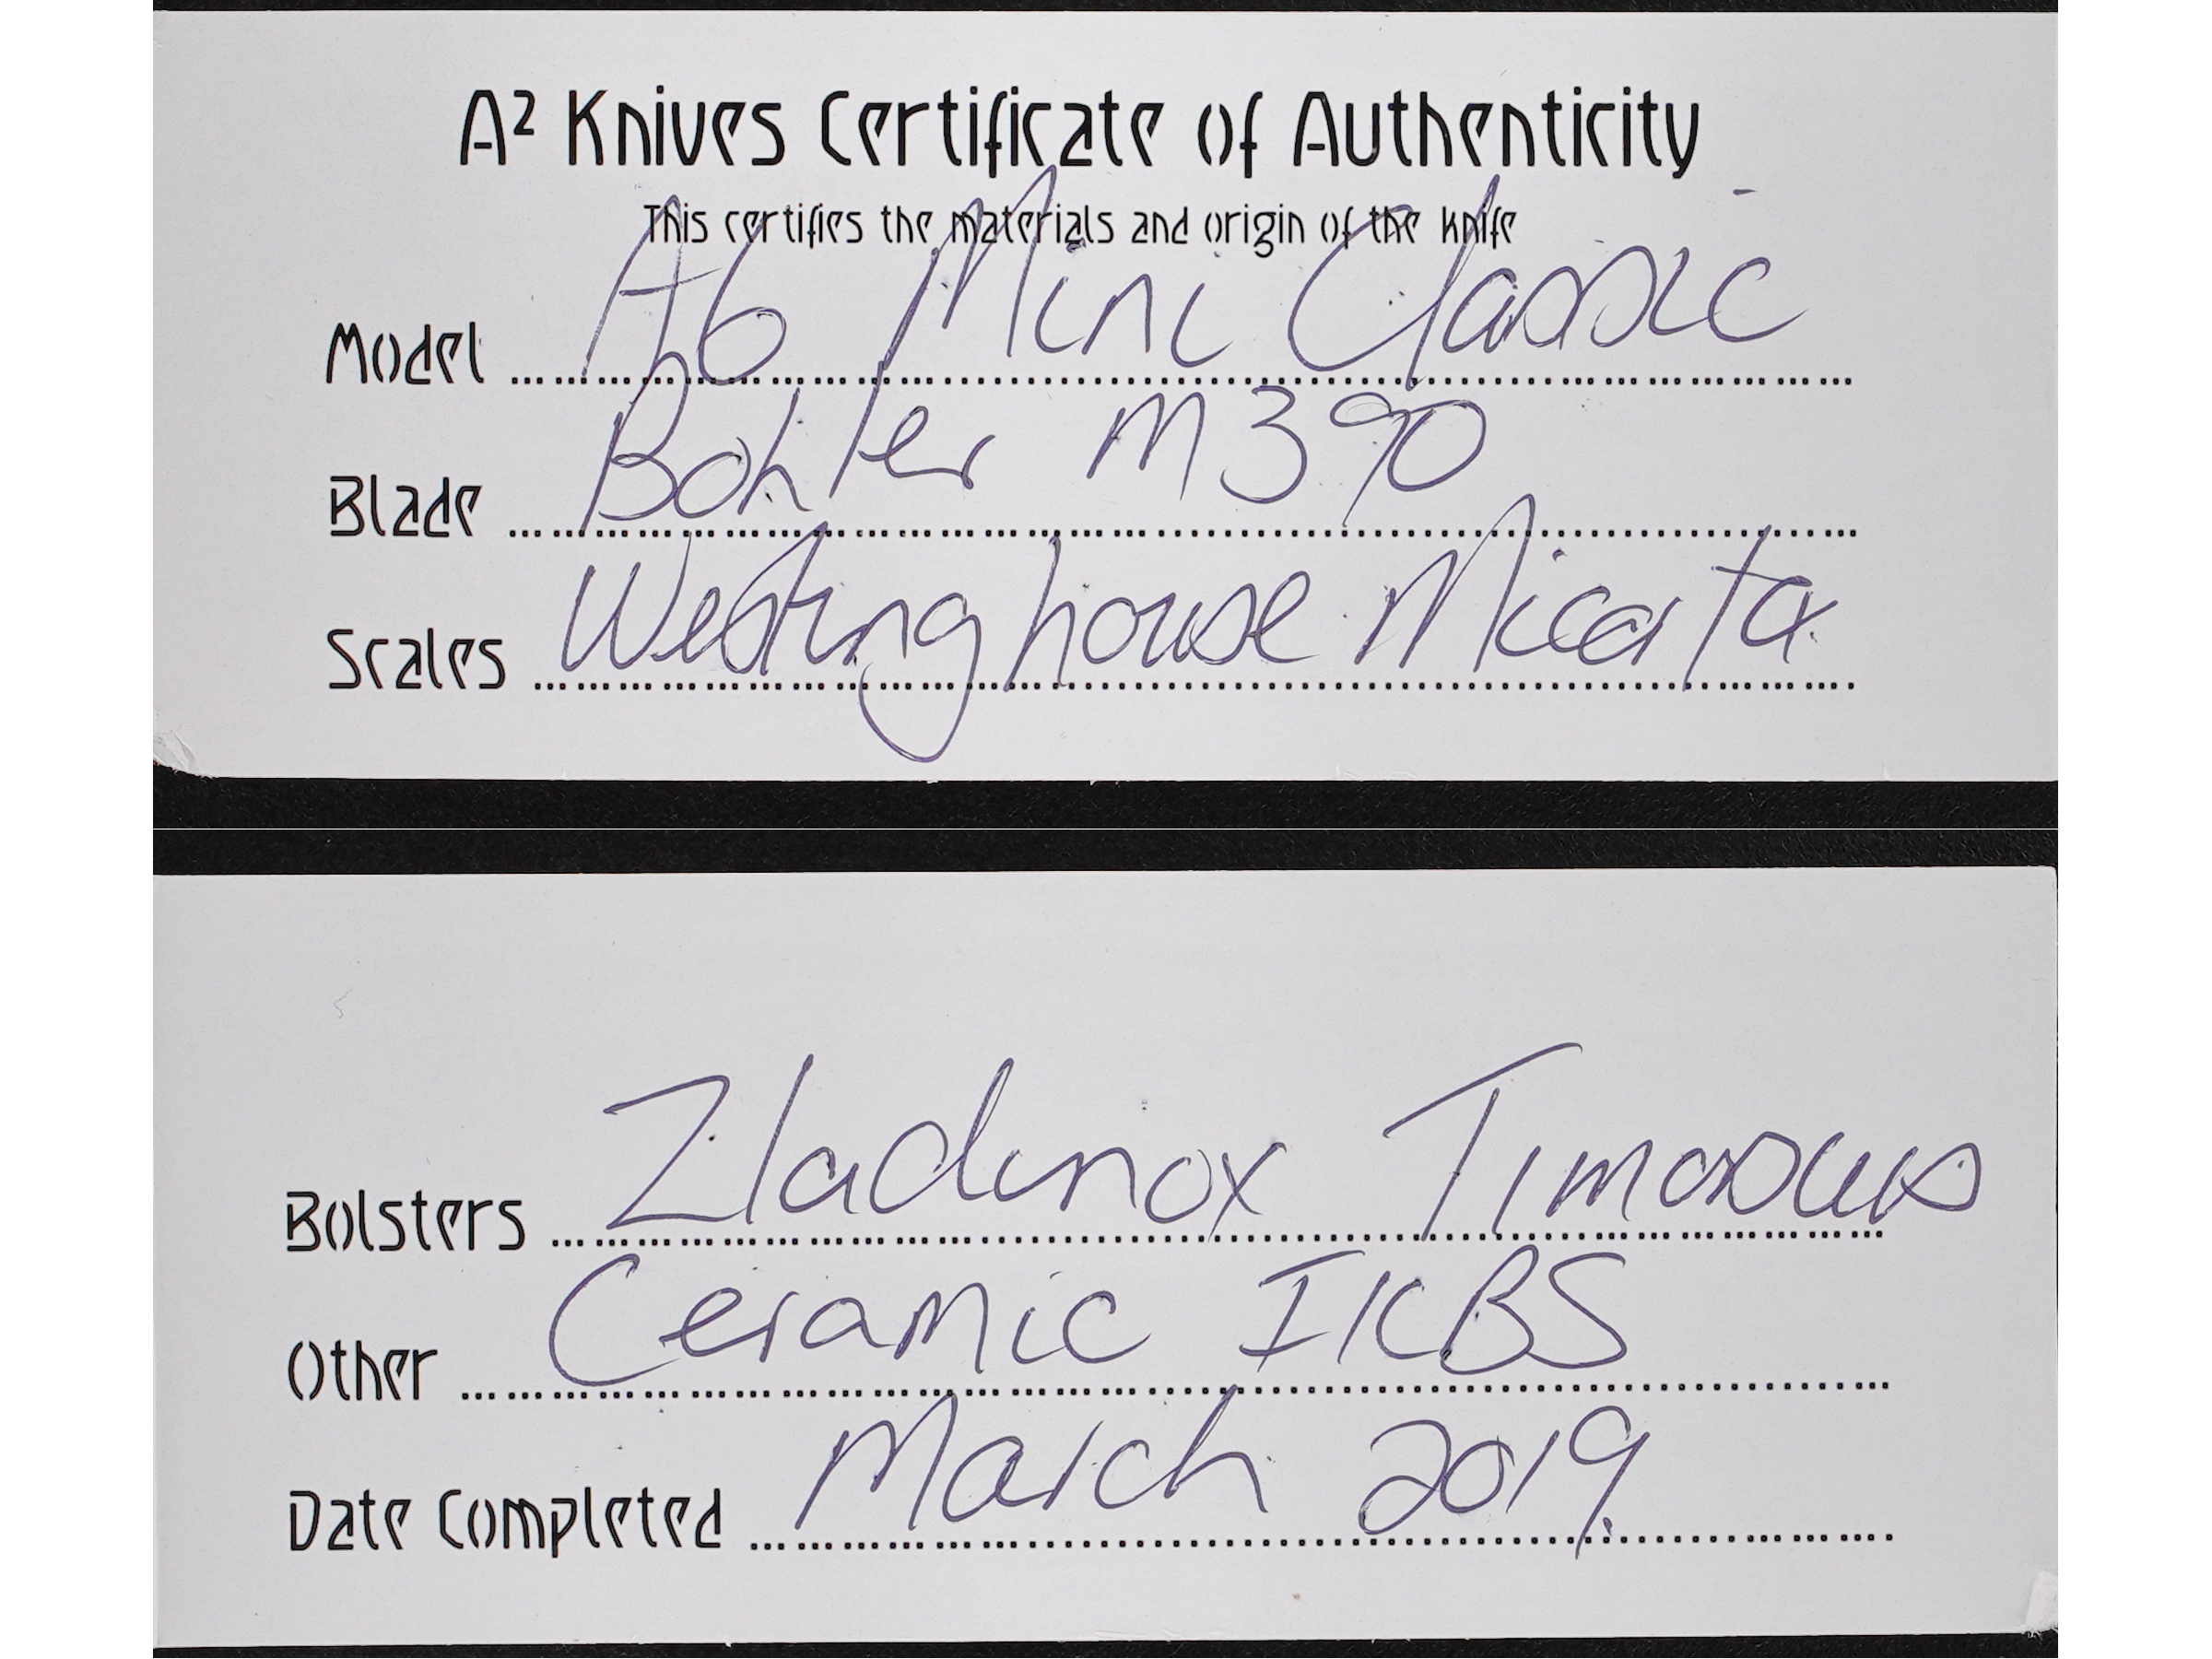 A² Knives Certificate of Authenticity
This certifies the materials and origin of the knife
Model A6 Mini Classic
Blade Bohler M390
Scales Westinghouse Micarta
Bolsters Zladinox Timascus
Other Ceramic IKBS
Date Completed March 2019